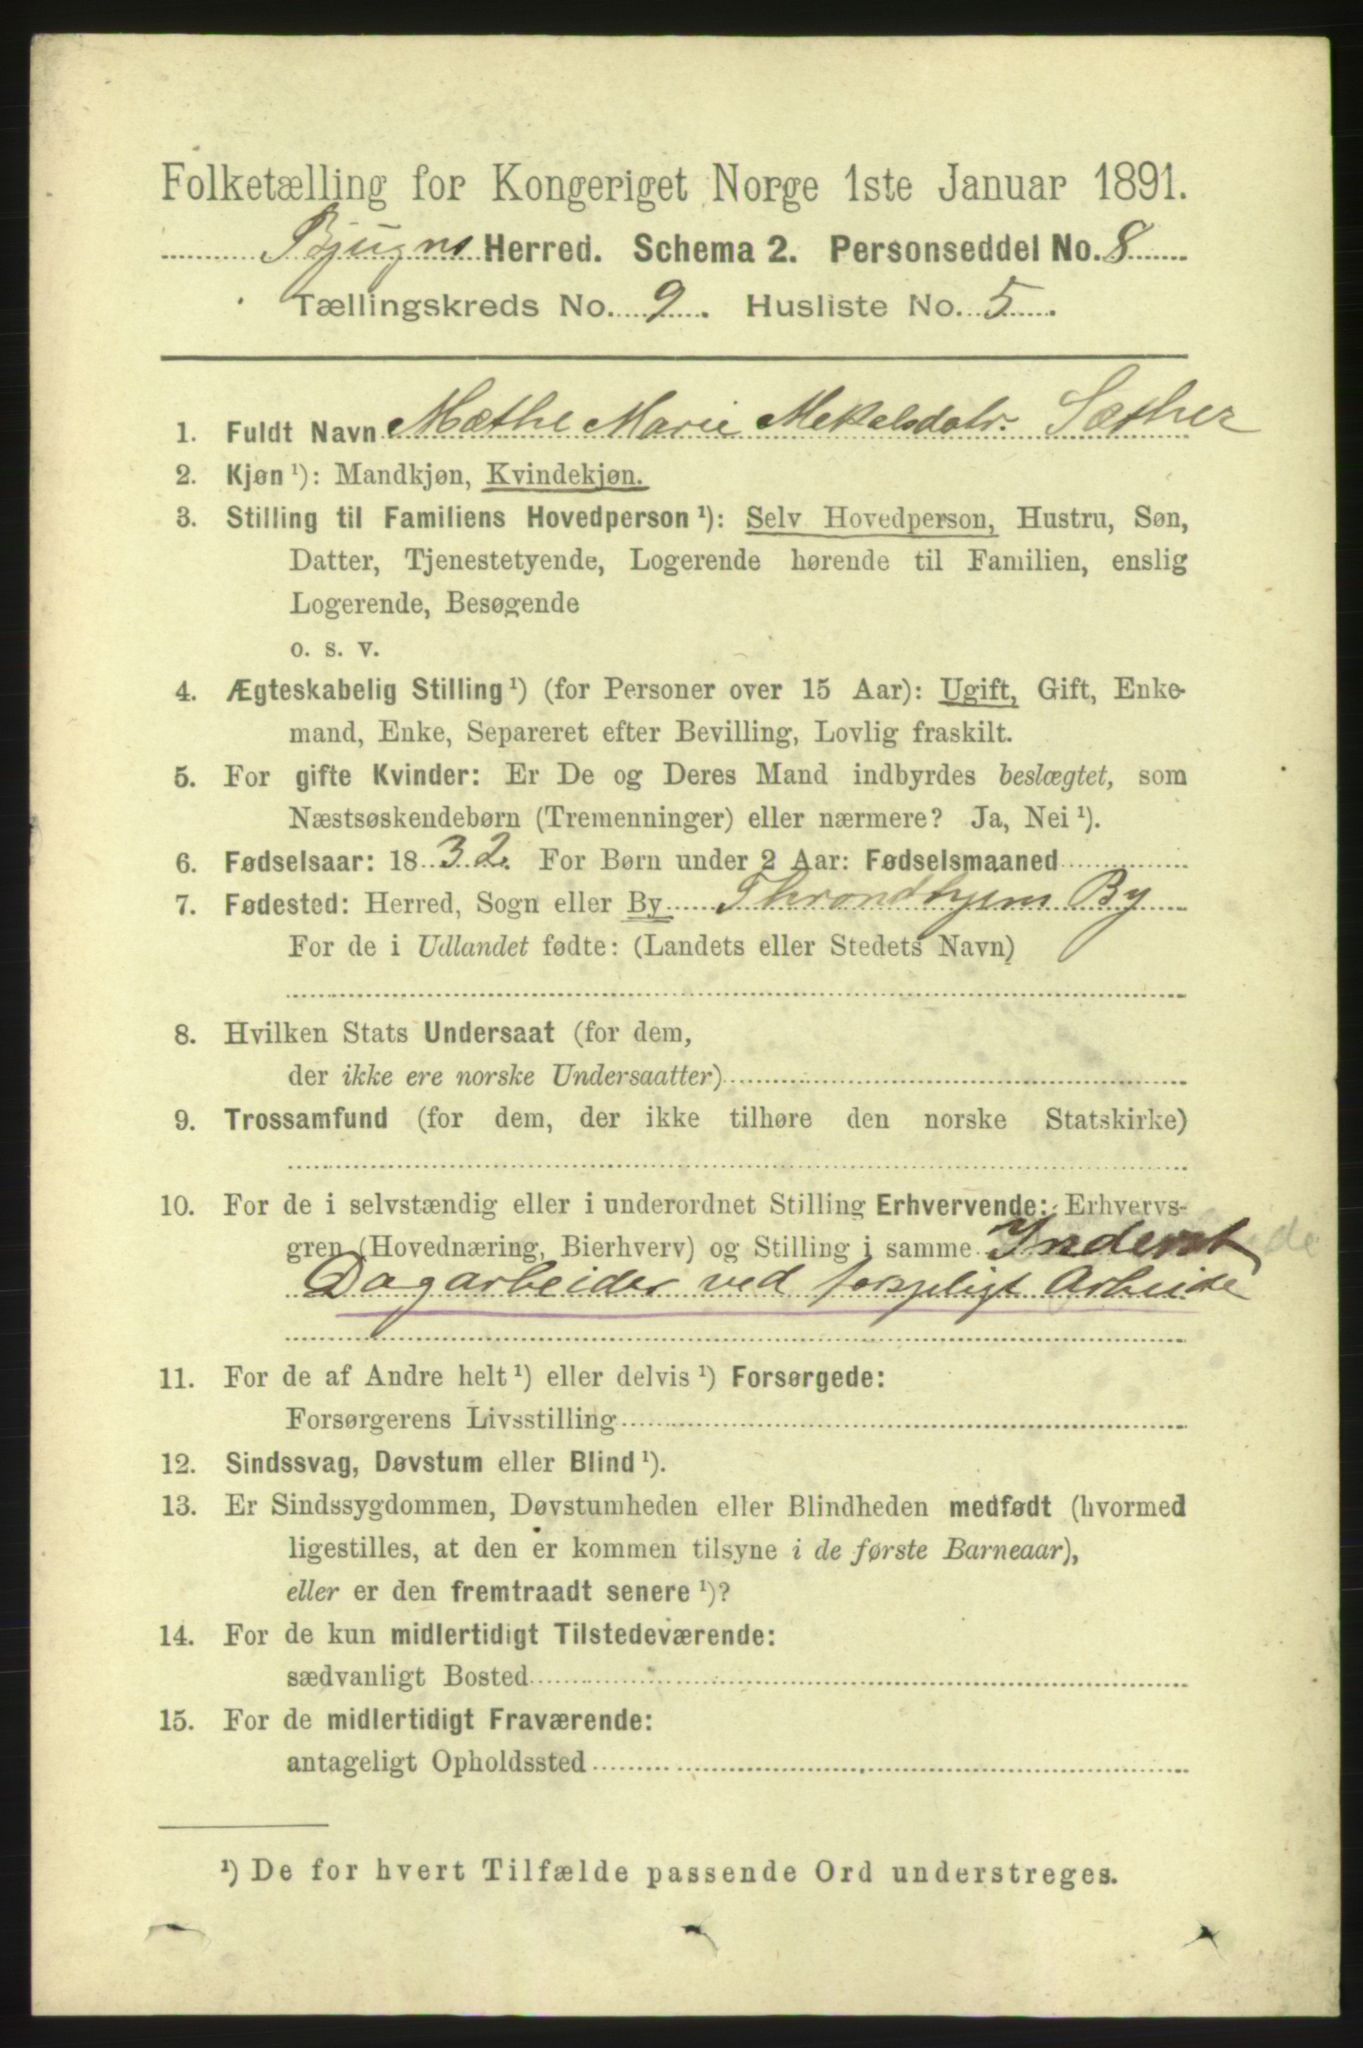 Folketælling for Kongeriget Norge 1ste Januar 1891.
Bjugns Herred. Schema 2. Personseddel No. 8
Tællingskreds No. 9. Husliste No. 5.
1. Fuldt Navn Mæthe Marie Mekelsdatr. Sæther
2. Kjøn ¹): Mandkjøn, Kvindekjøn.
3. Stilling til Familiens Hovedperson ¹): Selv Hovedperson, Hustru, Søn,
Datter, Tjenestetyende, Logerende hørende til Familien, enslig
Logerende, Besøgende
o. s. v.
4. Ægteskabelig Stilling ¹) (for Personer over 15 Aar): Ugift, Gift, Enke-
mand, Enke, Separeret efter Bevilling, Lovlig fraskilt.
5. For gifte Kvinder: Er De og Deres Mand indbyrdes beslægtet, som
Næstsøskendebørn (Tremenninger) eller nærmere? Ja, Nei ¹).
6. Fødselsaar: 1832. For Børn under 2 Aar: Fødselsmaaned
7. Fødested: Herred, Sogn eller By Throndhjems By
For de i Udlandet fødte: (Landets eller Stedets Navn)
8. Hvilken Stats Undersaat (for dem,
der ikke ere norske Undersaatter)
9. Trossamfund (for dem, der ikke tilhøre den norske Statskirke)
10. For de i selvstændig eller i underordnet Stilling Erhvervende: Erhvervs-
gren (Hovednæring, Bierhverv) og Stilling i samme Inderst
Dagarbeider ved forskjeligt Arbeide
11. For de af Andre helt ¹) eller delvis ¹) Forsørgede:
Forsørgerens Livsstilling
12. Sindssvag, Døvstum eller Blind ¹).
13. Er Sindssygdommen, Døvstumheden eller Blindheden medfødt (hvormed
ligestilles, at den er kommen tilsyne i de første Barneaar),
eller er den fremtraadt senere ¹)?
14. For de kun midlertidigt Tilstedeværende:
sædvanligt Bosted
15. For de midlertidigt Fraværende:
antageligt Opholdssted
¹) De for hvert Tilfælde passende Ord understreges.